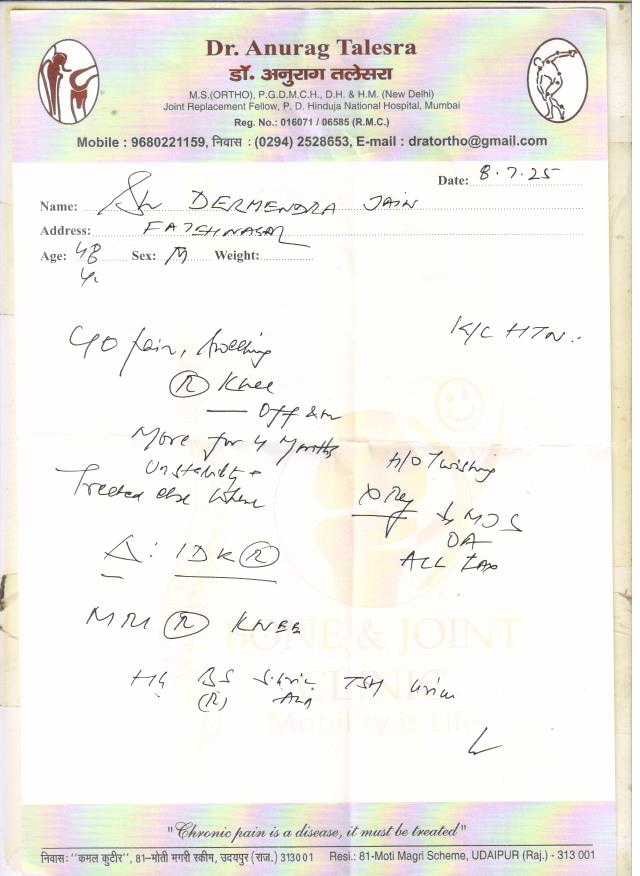 Dr. Anurag Talesra
डॉ. अनुराग तलेसरा
M.S.(ORTHO), P.G.D.M.C.H., D.H. & H.M. (New Delhi)
Joint Replacement Fellow, P. D. Hinduja National Hospital, Mumbai
Reg. No.: 016071 / 06585 (R.M.C.)
Mobile : 9680221159, निवास : (0294) 2528653, E-mail : dratortho@gmail.com
Date: 8.7.25
Name: Sh DERMENDRA JAIN
Address: FATEHNAGAR
Age: 48 Sex: M Weight:
K/C HTN
pain, swelling
(R) Knee
— Off & on
More for 4 Months
Unstability +
Treated else where
H/O Twisting
X Ray
OA
Δ: IDK (R)
MRI (R) KNEE
BONE & JOINT
CLINIC
BS TSH
(R)
Mobility is Life
"Chronic pain is a disease, it must be treated"
निवास: "कमल कुटीर", 81-मोती मगरी स्कीम, उदयपुर (राज.) 313001 Resi.: 81-Moti Magri Scheme, UDAIPUR (Raj.) - 313 001